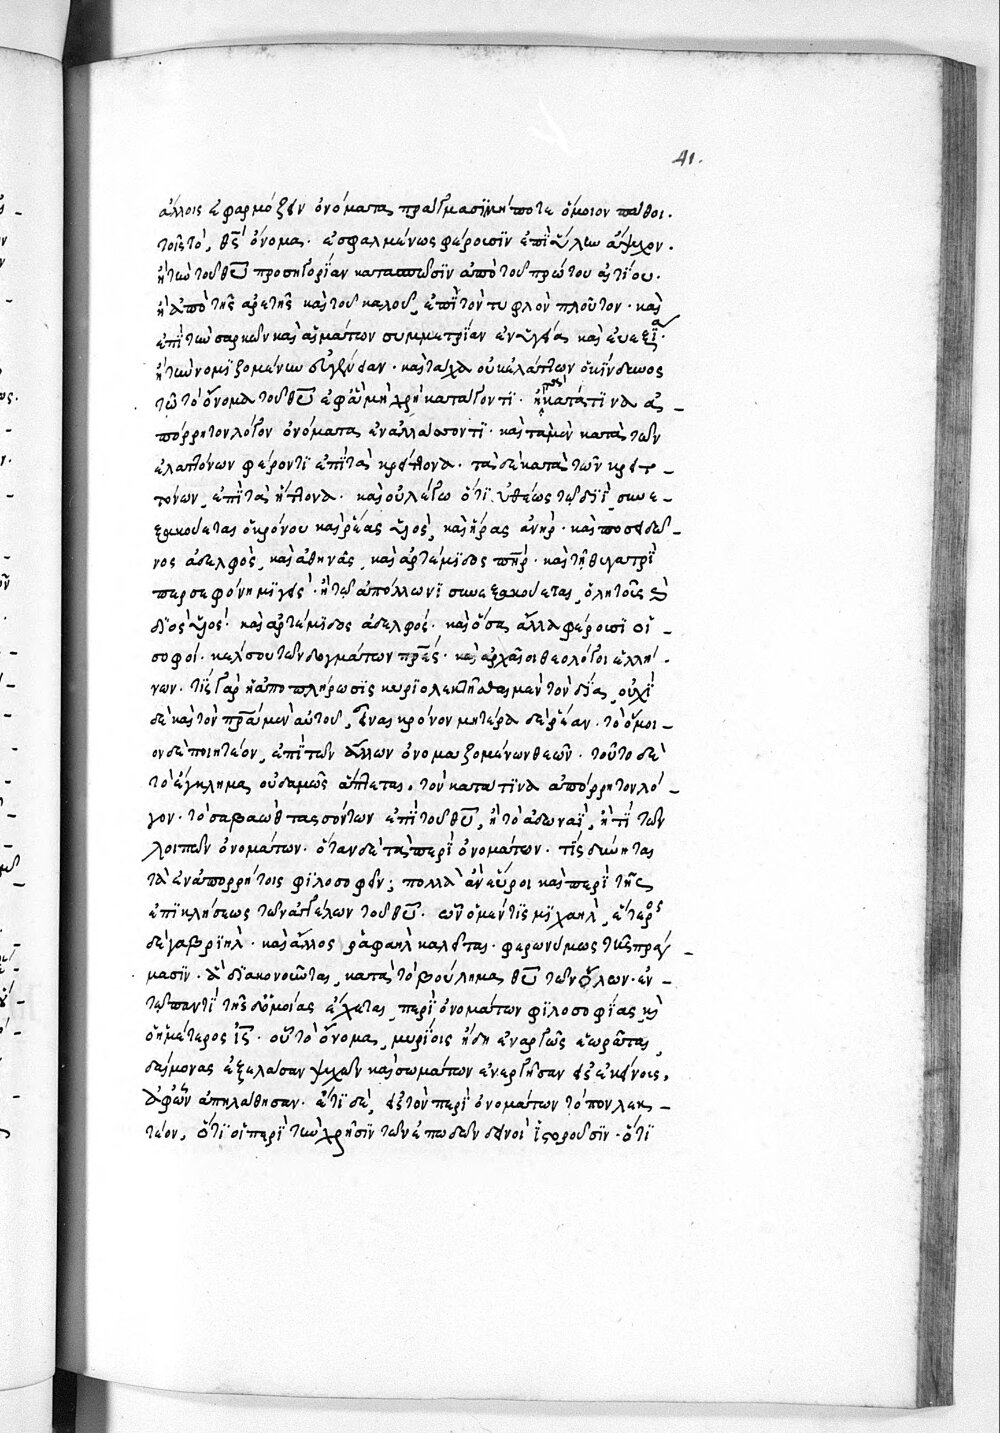 41.
ἄλλοις ἐφαρμόζειν ὀνόματα πράγμασιν μήποτε ὅμοιον πάθοι.
τοῖς τὸ, θς̅ ὄνομα. ἐσφαλμένως φέρουσιν ἐπὶ ὕλην ἄψυχον.
ἢ τὴν τοῦ θυ̅ προσηγορίαν κατασπῶσιν ἀπὸ τοῦ πρώτου αἰτίου.
ἢ ἀπὸ τῆς ἀρετῆς καὶ τοῦ καλοῦ, ἐπὶ τὸν τυφλὸν πλοῦτον. καὶ
ἐπὶ τὴν σαρκῶν καὶ αἱμάτων συμμετρίαν ἐν ὑγείᾳ καὶ εὐεξίᾳ.
ἢ τὴν νομιζομένην εὐγένειαν. καὶ τάχα οὐκ ἐλάττων ὁ κίνδυνος
τῷ τὸ ὄνομα τοῦ θυ̅ ἐφ' ἃ μὴ χρὴ κατάγοντι. ἢ κατά τινα ἀ_
πόρρητον λόγον ὀνόματα ἐναλλάττοντι. καὶ τὰ μὲν κατὰ τῶν
ἐλαττόνων φέροντι ἐπὶ τὰ κρείττονα. τὰ δὲ κατὰ τῶν κρειτ_
τόνων, ἐπὶ τὰ ἥττονα. καὶ οὐ λέγω ὅτι εὐθέως τῷ διῒ συνε_
ξακούεται ὁ κρόνου καὶ ῥέας υἱὸς, καὶ ἥρας ἀνήρ. καὶ ποσειδῶ_
νος ἀδελφὸς, καὶ ἀθηνᾶς, καὶ ἀρτέμιδος πη̅ρ. καὶ τῇ θυγατρὶ
περσεφόνῃ μιγείς. ἢ τῷ ἀπόλλωνι συνεξακούεται, ὁ λητοῦς καὶ
διὸς υἱός. καὶ ἀρτέμιδος ἀδελφός. καὶ ὅσα ἄλλα φέρουσι οἱ_
σοφοί. κέλσου τῶν δογμάτων πρε̅ς. καὶ ἀρχαῖοι θεολόγοι ἑλλή_
νων. τίς γὰρ ἡ ἀποπλήρωσις κυριολεκτεῖσθαι μὲν τὸν δία, οὐχὶ
δὲ καὶ τὸν πρα̅ μὲν αὐτοῦ, εἶναι κρόνον μητέρα δὲ ῥέαν. τὸ ὅμοι_
ον δὲ ποιητέον, ἐπὶ τῶν ἄλλων ὀνομαζομένων θεῶν. τοῦτο δὲ
τὸ ἔγκλημα οὐδαμῶς ἅπτεται. τὸν κατά τινα ἀπόρρητον λό_
γον. τὸ σαβαὼθ τασσόντων ἐπὶ τοῦ θυ̅, ἢ τὸ ἀδωναῒ, ἤ τι τῶν
λοιπῶν ὀνομάτων. ὅταν δὲ τὰ περὶ ὀνομάτων. τὶς δύνηται
τὰ ἐν ἀπορρήτοις φιλοσοφεῖν; πολλὰ ἂν εὕροι καὶ περὶ τῆς
ἐπικλήσεως τῶν ἀγγέλων τοῦ θυ̅. ὧν ὁ μέν τις μιχαὴλ, ἕτερος
δὲ γαβριὴλ. καὶ ἄλλος ῥαφαὴλ καλεῖται. φερωνύμως τοῖς πράγ_
μασιν. ἃ διακονοῦνται, κατὰ τὸ βούλημα θυ̅ τῶν ὅλων. ἐν_
τῷ παντί τῆς δ' ὁμοίας ἔχεται, περὶ ὀνομάτων φιλοσοφίας κὶ
ὁ ἡμέτερος ις̅. οὗ τὸ ὄνομα, μυρίοις ἤδη ἐναργῶς ἑώραται,
δαίμονας ἐξελάσαν ψυχῶν καὶ σωμάτων ἐνεργῆσαν εἰς ἐκείνους,
ἀφ' ὧν ἀπηλάθησαν. ἔτι δὲ, εἰς τὸν περὶ ὀνομάτων τόπον λεκ_
τέον, ὅτι οἱ περὶ τὴν χρῆσιν τῶν ἐπῳδῶν δεινοὶ ἱστοροῦσιν. ὅτι